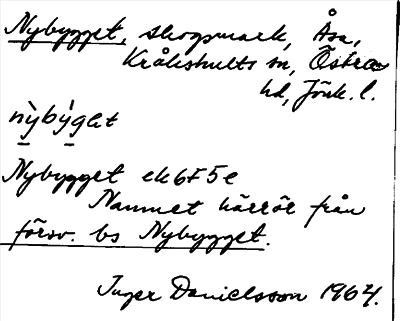 Nybygget, skogsmark, Åsa,
Kråkshults sn, Östra
hd, Jönk. l.
nỳbýget
Nybygget ek 6F5e
Namnet härrör från
försv. bs Nybygget.
Inger Danielsson 1964.